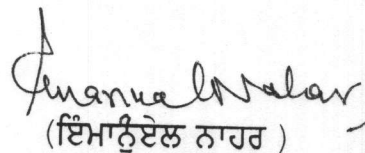 Emanual Nahar
(ਇੰਮਾਨੂੰਏਲ ਨਾਹਰ )